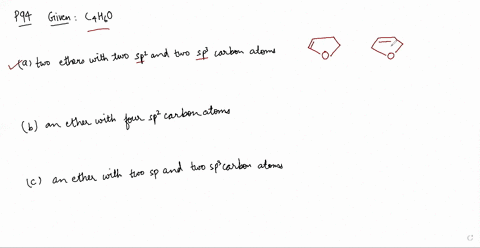 P94 Given: C4H6O
(a) two ethers with two sp² and two sp³ carbon atoms
O O
(b) an ether with four sp² carbon atoms
(c) an ether with two sp and two sp³ carbon atoms